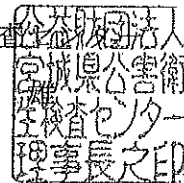 公益財団法人
宮城県公害衛
生検査センター
理事長之印